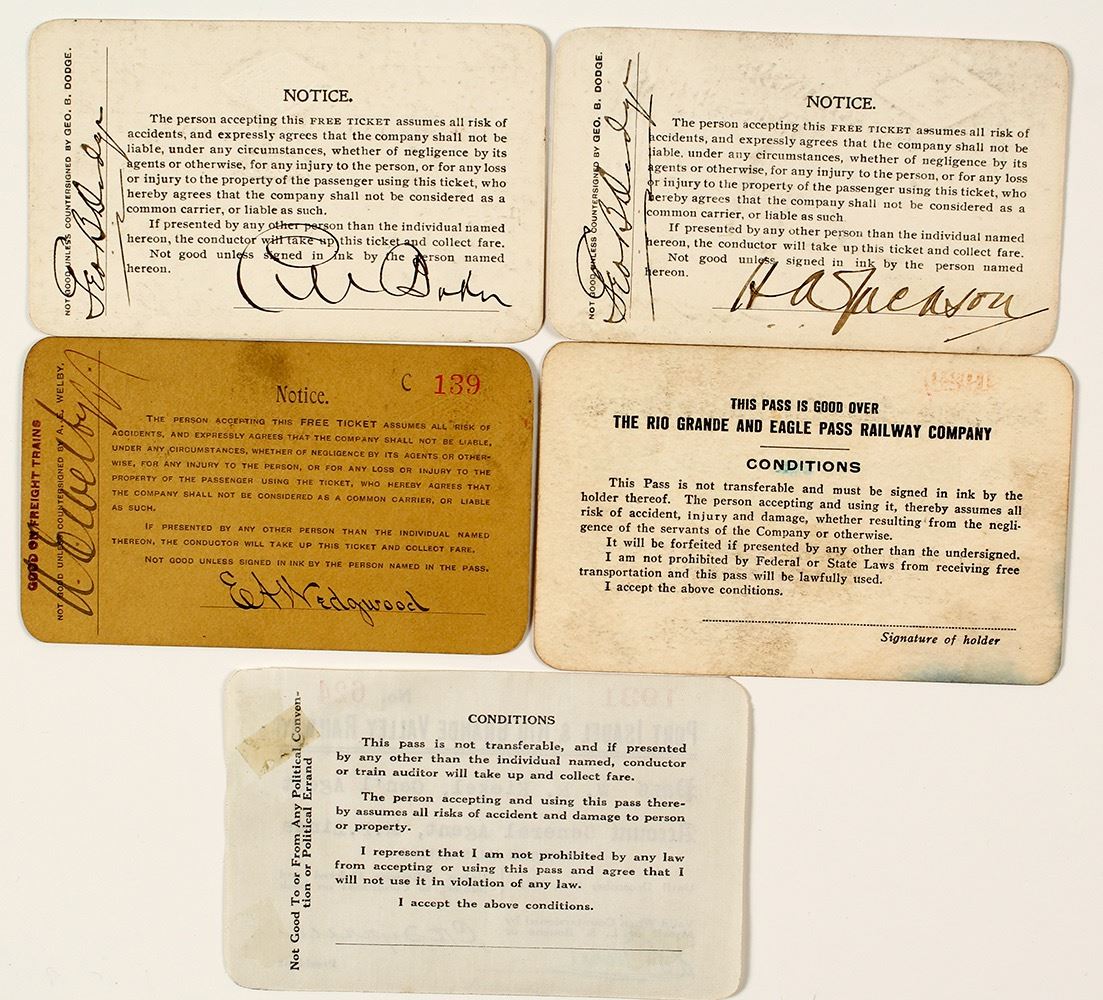 NOT GOOD UNLESS COUNTERSIGNED BY GEO. B. DODGE.
Geo B Dodge
NOTICE.
The person accepting this FREE TICKET assumes all risk of
accidents, and expressly agrees that the company shall not be
liable, under any circumstances, whether of negligence by its
agents or otherwise, for any injury to the person, or for any loss
or injury to the property of the passenger using this ticket, who
hereby agrees that the company shall not be considered as a
common carrier, or liable as such.
If presented by any other person than the individual named
hereon, the conductor will take up this ticket and collect fare.
Not good unless signed in ink by the person named
hereon.
NOT GOOD UNLESS COUNTERSIGNED BY GEO. B. DODGE.
Geo B Dodge
NOTICE.
The person accepting this FREE TICKET assumes all risk of
accidents, and expressly agrees that the company shall not be
liable, under any circumstances, whether of negligence by its
agents or otherwise, for any injury to the person, or for any loss
or injury to the property of the passenger using this ticket, who
hereby agrees that the company shall not be considered as a
common carrier, or liable as such
If presented by any other person than the individual named
hereon, the conductor will take up this ticket and collect fare.
Not good unless signed in ink by the person named
hereon.
H A Jackson
GOOD ON FREIGHT TRAINS
NOT GOOD UNLESS COUNTERSIGNED BY A. E. WELBY.
A. E. Welby
Notice.
C 139
THE PERSON ACCEPTING THIS FREE TICKET ASSUMES ALL RISK OF
ACCIDENTS, AND EXPRESSLY AGREES THAT THE COMPANY SHALL NOT BE LIABLE,
UNDER ANY CIRCUMSTANCES, WHETHER OF NEGLIGENCE BY ITS AGENTS OR OTHER-
WISE, FOR ANY INJURY TO THE PERSON, OR FOR ANY LOSS OR INJURY TO THE
PROPERTY OF THE PASSENGER USING THE TICKET, WHO HEREBY AGREES THAT
THE COMPANY SHALL NOT BE CONSIDERED AS A COMMON CARRIER, OR LIABLE
AS SUCH.
IF PRESENTED BY ANY OTHER PERSON THAN THE INDIVIDUAL NAMED
THEREON, THE CONDUCTOR WILL TAKE UP THIS TICKET AND COLLECT FARE.
NOT GOOD UNLESS SIGNED IN INK BY THE PERSON NAMED IN THE PASS.
E A Wedgwood
THIS PASS IS GOOD OVER
THE RIO GRANDE AND EAGLE PASS RAILWAY COMPANY
CONDITIONS
This Pass is not transferable and must be signed in ink by the
holder thereof. The person accepting and using it, thereby assumes all
risk of accident, injury and damage, whether resulting from the negli-
gence of the servants of the Company or otherwise.
It will be forfeited if presented by any other than the undersigned.
I am not prohibited by Federal or State Laws from receiving free
transportation and this pass will be lawfully used.
I accept the above conditions.
Signature of holder
Not Good To or From Any Political Conven-
tion or Political Errand
CONDITIONS
This pass is not transferable, and if presented
by any other than the individual named, conductor
or train auditor will take up and collect fare.
The person accepting and using this pass there-
by assumes all risks of accident and damage to person
or property.
I represent that I am not prohibited by any law
from accepting or using this pass and agree that I
will not use it in violation of any law.
I accept the above conditions.